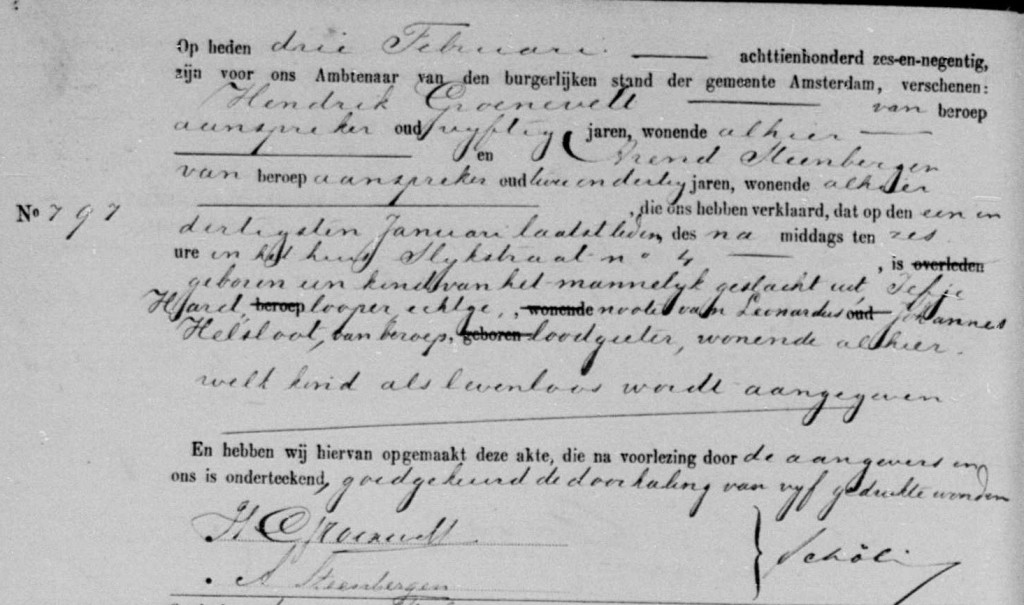 Op heden drie Februari achttienhonderd zes-en-negentig,
zijn voor ons Ambtenaar van den burgerlijken stand der gemeente Amsterdam, verschenen:
Hendrik Groenevelt van beroep
aanspreker oud vyftig jaren, wonende alhier
en Arend Steenbergen
van beroep aanspreker oud twee en dertig jaren, wonende alhier
No 797 , die ons hebben verklaard, dat op den een en
dertigsten Januari laatstleden, des na middags ten zes
ure in het huis Slykstraat no 4 , is overleden
geboren een kind van het mannelyk geslacht uit
beroep looper, echtge, , wonende noote van Leonardus oud Johannes
Helsloot, van beroep, geboren loodgieter, wonende alhier.
welk kind als levenloos wordt aangegeven
En hebben wij hiervan opgemaakt deze akte, die na voorlezing door de aangevers en
ons is onderteekend, goedgekeurd de doorhaling van vyf gedrukte woorden
H Groenevelt
A Steenbergen